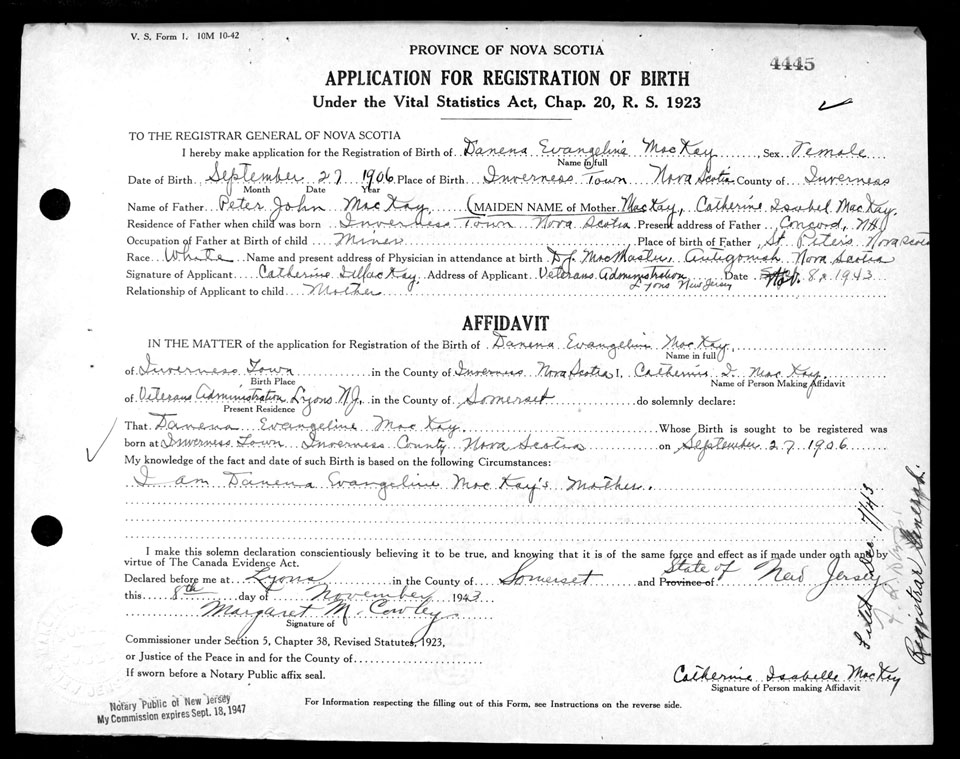 V. S. Form 1. 10M 10-42
PROVINCE OF NOVA SCOTIA
4445
APPLICATION FOR REGISTRATION OF BIRTH
Under the Vital Statistics Act, Chap. 20, R. S. 1923
TO THE REGISTRAR GENERAL OF NOVA SCOTIA
I hereby make application for the Registration of Birth of Danena Evangeline MacKay Sex Female
Name in full
Date of Birth September 27 1906 Place of Birth Inverness Town Nova Scotia County of Inverness
Month Date Year
Name of Father Peter John MacKay (MAIDEN NAME of Mother MacKay, Catherine Isabel MacKay.
Residence of Father when child was born Inverness Town Nova Scotia Present address of Father Concord, NH
Occupation of Father at Birth of child Miner Place of birth of Father St. Peter's Nova Scotia
Race White Name and present address of Physician in attendance at birth MacMaster Antigonish Nova Scotia
Signature of Applicant Catherine MacKay. Address of Applicant Veterans Administration Date Nov. 8, 1943
Lyons New Jersey
Relationship of Applicant to child Mother
AFFIDAVIT
IN THE MATTER of the application for Registration of the Birth of Danena Evangeline MacKay.
Name in full
of Inverness Town in the County of Inverness Nova Scotia I, Catherine I. MacKay.
Birth Place Name of Person Making Affidavit
of Veterans Administration Lyons N.J. in the County of Somerset do solemnly declare:
Present Residence
That Danena Evangeline MacKay. Whose Birth is sought to be registered was
born at Inverness Town Inverness County Nova Scotia on September 27 1906
My knowledge of the fact and date of such Birth is based on the following Circumstances:
I am Danena Evangeline MacKay's Mother.
I make this solemn declaration conscientiously believing it to be true, and knowing that it is of the same force and effect as if made under oath and by
virtue of The Canada Evidence Act.
Declared before me at Lyons in the County of Somerset and Province of State of New Jersey
this 8th day of November 1943
Margaret M. Cowley
Signature of
Commissioner under Section 5, Chapter 38, Revised Statutes, 1923,
or Justice of the Peace in and for the County of
If sworn before a Notary Public affix seal.
Catherine Isabelle MacKay
Signature of Person making Affidavit
Notary Public of New Jersey
My Commission expires Sept. 18, 1947
For Information respecting the filling out of this Form, see Instructions on the reverse side.
Filed Dec. 7/43
Registrar General.